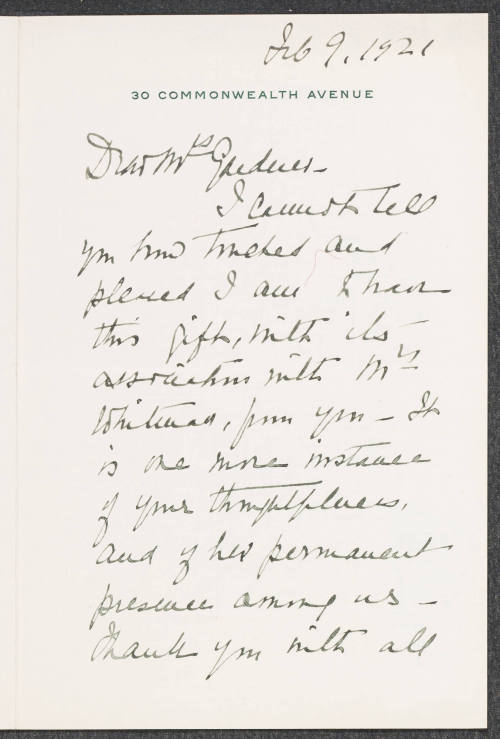 Feb 9. 1921
30 COMMONWEALTH AVENUE
Dear Mrs Gardner –
I cannot tell
you how touched and
pleased I am to have
this gift, with its
association with Mrs
Whitman, from you – It
is one more instance
of your thoughtfulness,
and of her permanent
presence among us –
Thank you with all